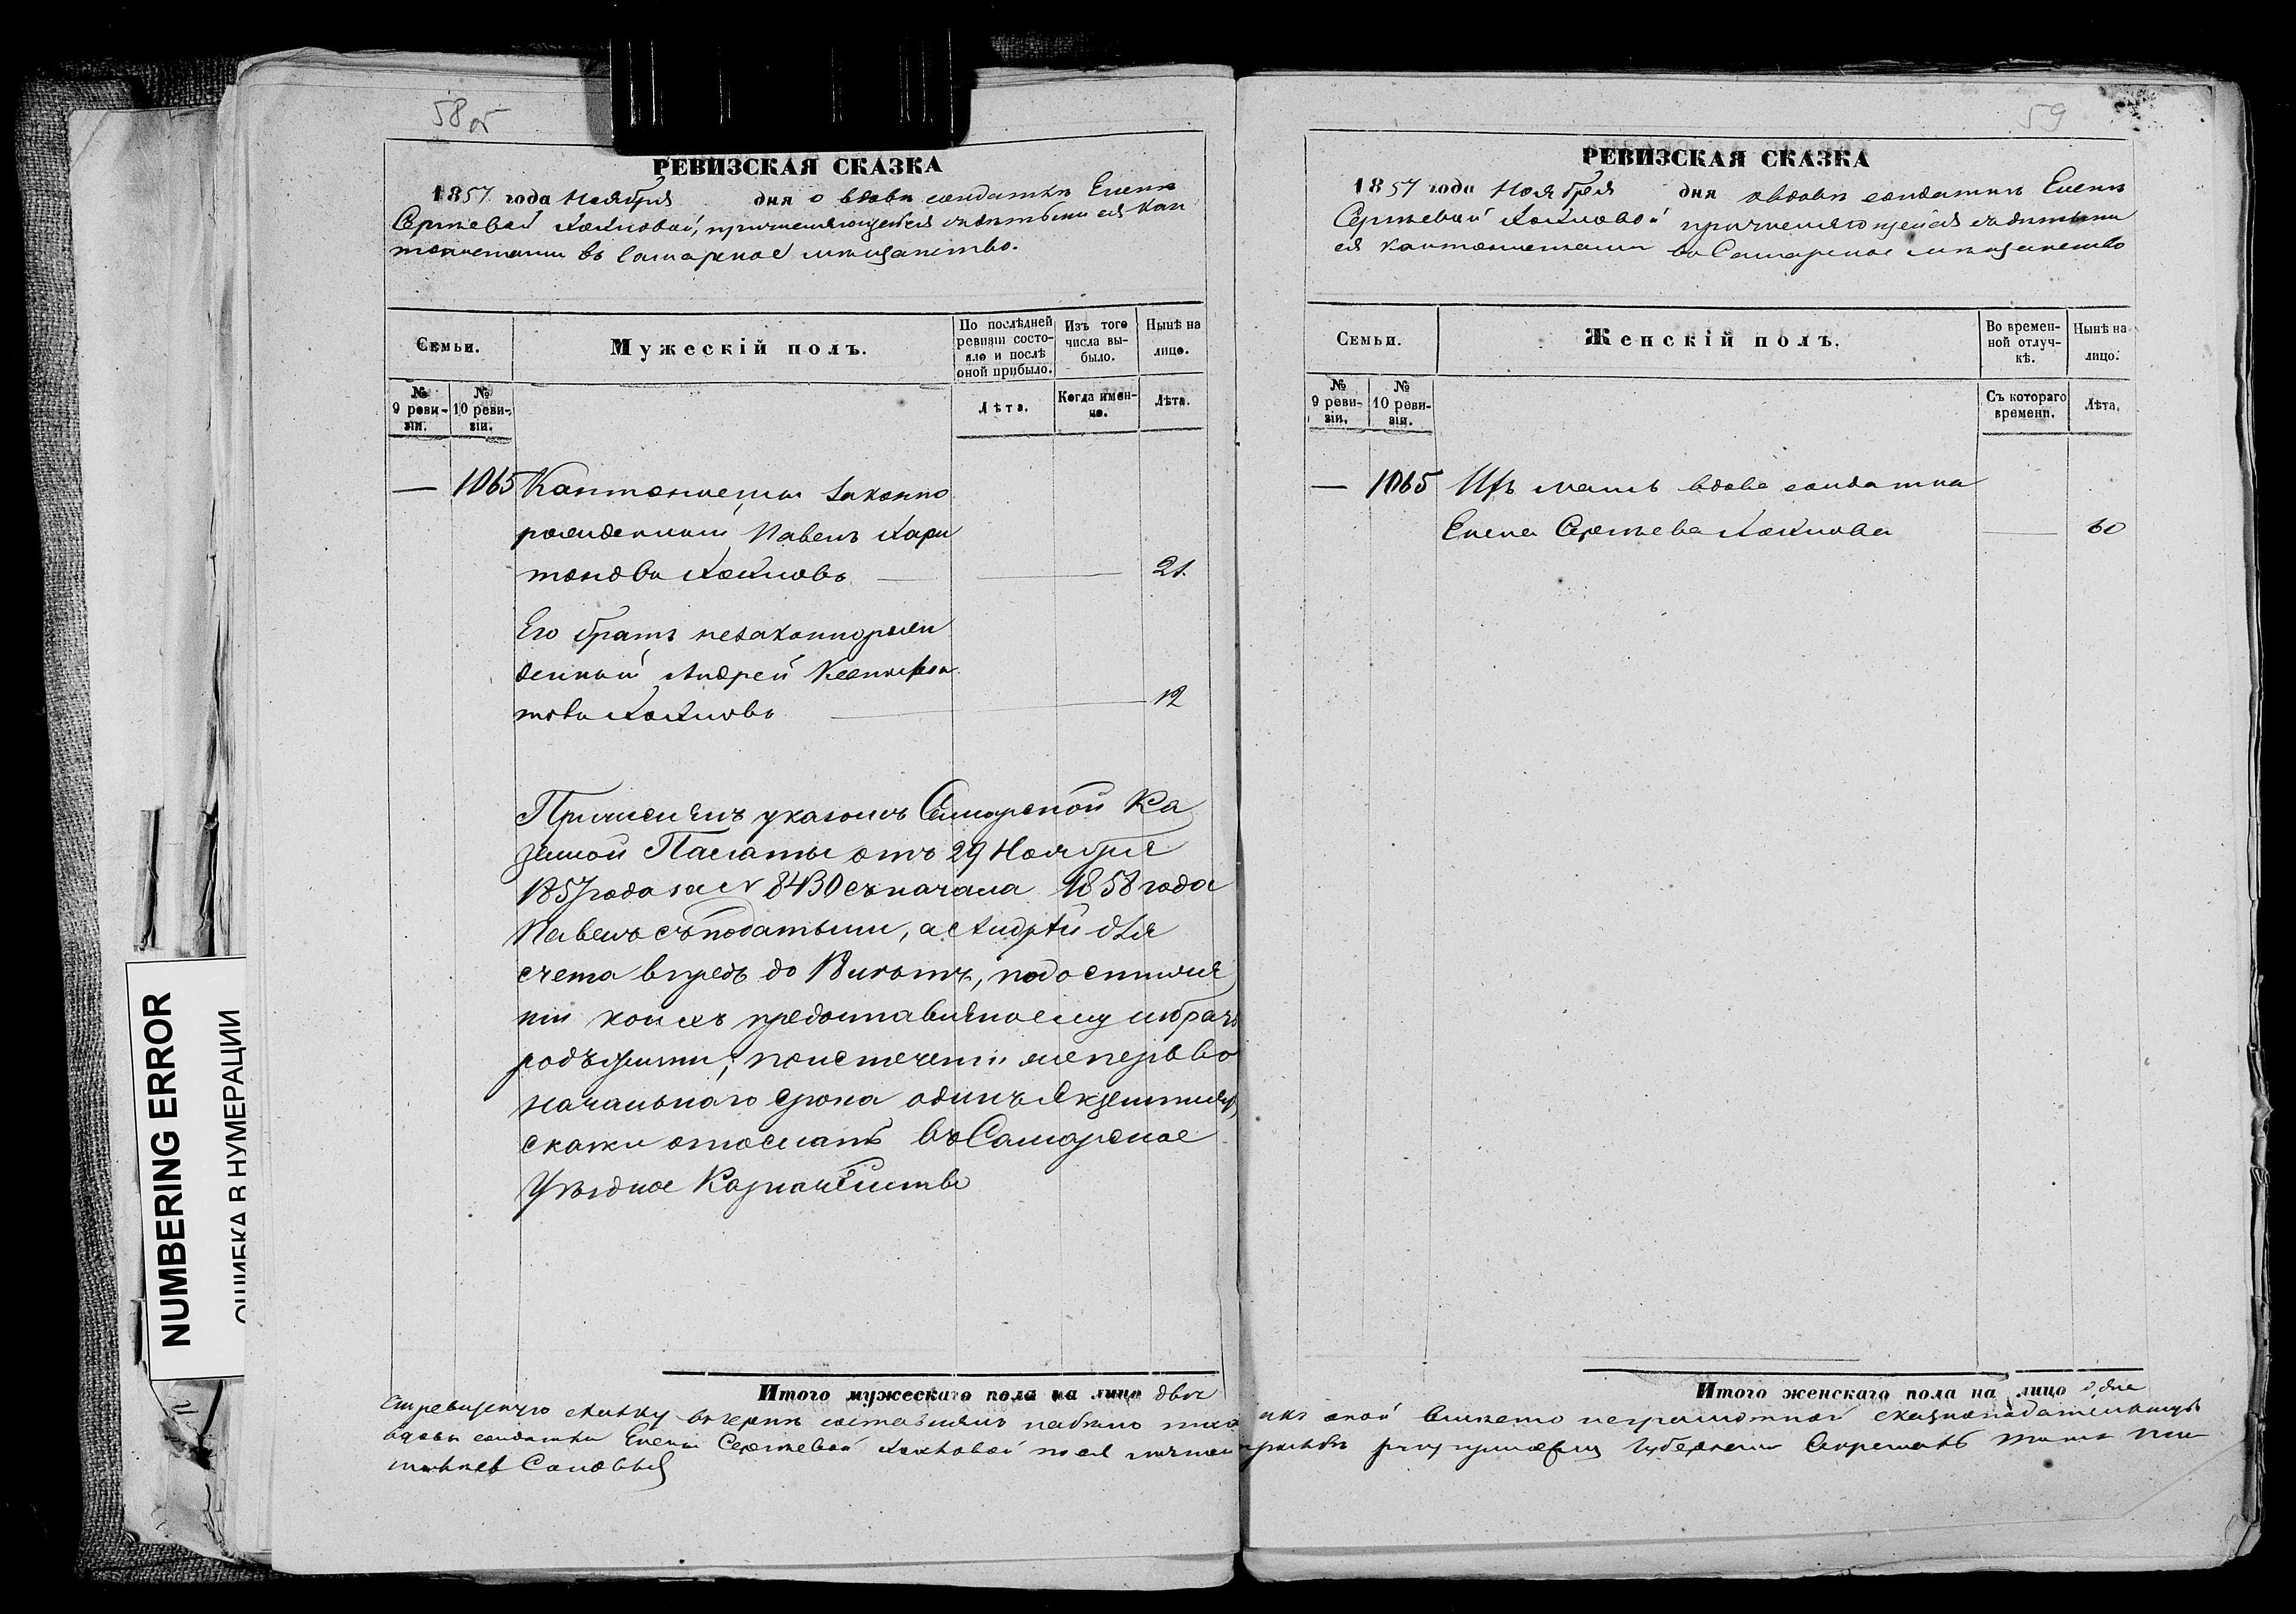 58 об
РЕВИЗСКАЯ СКАЗКА
1857 года Ноября дня о вдове солдатке Елене
Сергеевой причисляющейся съ детьми ея кан
тонистами въ Самарское мещанство.
Семьи.
Мужескій полъ.
По послѣдней ревизіи состо-яло и послѣ оной прибыло.
Изъ того числа вы-было.
Нынѣ на лицо.
№ 9 реви-зіи.
№ 10 реви-зіи.
Лѣта.
Когда имен-но.
Лѣта.
— 1065 Кантонисты законно
рожденный Павелъ Хари
тоновъ 21.
Его братъ незаконнорож
денный Андрей
12
Причислены указомъ Самарской Ка
зенной Палаты отъ 29 Ноября
1857 года за № 8430 съ начала 1858 года
Павелъ съ податьми, а Андрей для
счета впредь до 18 лѣтъ, по достиже
ніи коихъ предоставить ему избрать
родъ жизни, по истеченіи же перво
начальнаго срока одинъ экземпляръ
сказки отослать въ Самарское
Уѣздное Казначейство
Итого мужескаго пола на лицо двое
59
РЕВИЗСКАЯ СКАЗКА
1857 года Ноября дня о вдовѣ солдаткѣ Еленѣ
Сергѣевой причисляющейся съ дѣтьми
ея кантонистами въ Самарское мѣщанство
Семьи.
Женскій полъ.
Во времен-ной отлуч-кѣ.
Нынѣ на лицо.
№ 9 реви-зіи.
№ 10 реви-зіи.
Съ котораго времени.
Лѣта.
— 1065 Ихъ мать вдова солдатка
Елена Сергѣева — 60
Итого женскаго пола на лицо одна
Сію ревизскую сказку вчернѣ составлялъ набѣло писалъ и къ оной вмѣсто неграмотной сказкоподательницы
вдовы солдатки Елены Сергѣевой по ея личной прозьбѣ руку приложилъ Губернскій Секретарь
Соловьевъ
NUMBERING ERROR
ОШИБКА В НУМЕРАЦИИ